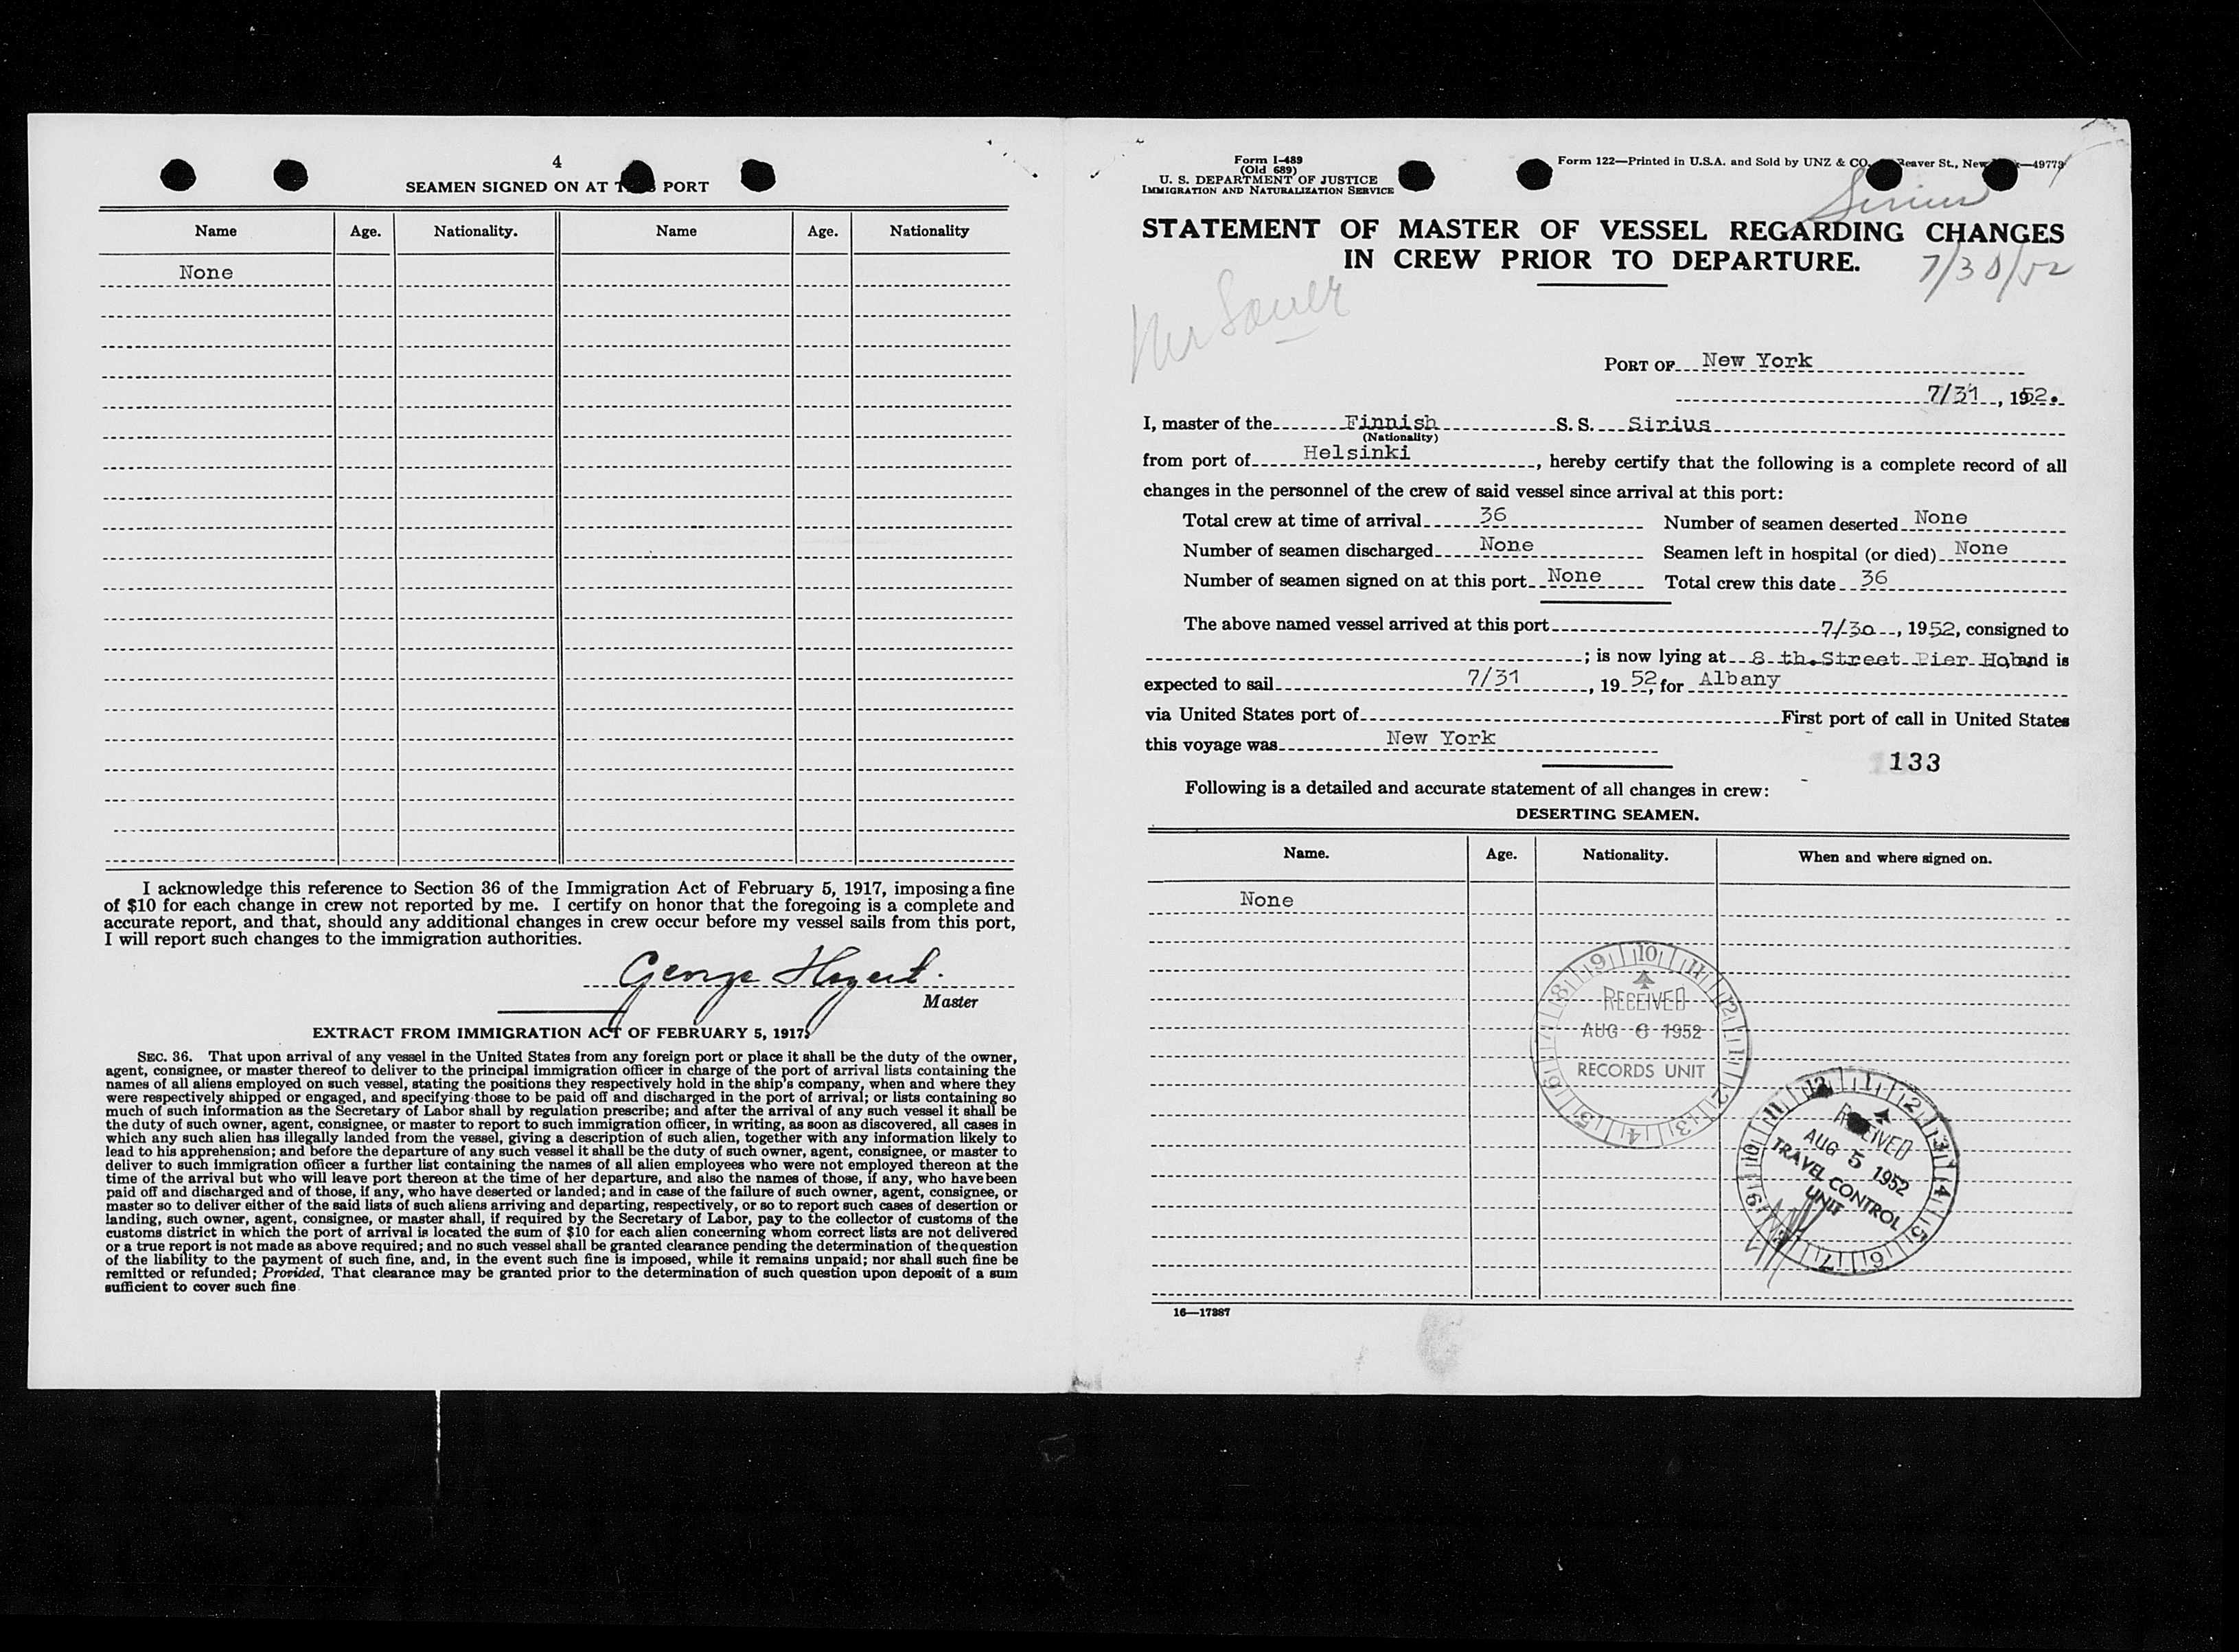 4
SEAMEN SIGNED ON AT PORT
Name Age. Nationality. Name Age. Nationality
None
I acknowledge this reference to Section 36 of the Immigration Act of February 5, 1917, imposing a fine
of $10 for each change in crew not reported by me. I certify on honor that the foregoing is a complete and
accurate report, and that, should any additional changes in crew occur before my vessel sails from this port,
I will report such changes to the immigration authorities.
George
Master
EXTRACT FROM IMMIGRATION ACT OF FEBRUARY 5, 1917.
SEC. 36. That upon arrival of any vessel in the United States from any foreign port or place it shall be the duty of the owner,
agent, consignee, or master thereof to deliver to the principal immigration officer in charge of the port of arrival lists containing the
names of all aliens employed on such vessel, stating the positions they respectively hold in the ship's company, when and where they
were respectively shipped or engaged, and specifying those to be paid off and discharged in the port of arrival; or lists containing so
much of such information as the Secretary of Labor shall by regulation prescribe; and after the arrival of any such vessel it shall be
the duty of such owner, agent, consignee, or master to report to such immigration officer, in writing, as soon as discovered, all cases in
which any such alien has illegally landed from the vessel, giving a description of such alien, together with any information likely to
lead to his apprehension; and before the departure of any such vessel it shall be the duty of such owner, agent, consignee, or master to
deliver to such immigration officer a further list containing the names of all alien employees who were not employed thereon at the
time of the arrival but who will leave port thereon at the time of her departure, and also the names of those, if any, who have been
paid off and discharged and of those, if any, who have deserted or landed; and in case of the failure of such owner, agent, consignee, or
master so to deliver either of the said lists of such aliens arriving and departing, respectively, or so to report such cases of desertion or
landing, such owner, agent, consignee, or master shall, if required by the Secretary of Labor, pay to the collector of customs of the
customs district in which the port of arrival is located the sum of $10 for each alien concerning whom correct lists are not delivered
or a true report is not made as above required; and no such vessel shall be granted clearance pending the determination of the question
of the liability to the payment of such fine, and, in the event such fine is imposed, while it remains unpaid; nor shall such fine be
remitted or refunded; Provided, That clearance may be granted prior to the determination of such question upon deposit of a sum
sufficient to cover such fine
Form I-489
(Old 689)
U. S. DEPARTMENT OF JUSTICE
IMMIGRATION AND NATURALIZATION SERVICE
Form 122—Printed in U.S.A. and Sold by UNZ & CO. Beaver St., New —49773
Sirius
STATEMENT OF MASTER OF VESSEL REGARDING CHANGES
IN CREW PRIOR TO DEPARTURE.
7/30/52
Mr Sauer
PORT OF New York
7/31, 1952.
I, master of the Finnish S. S. Sirius
(Nationality)
from port of Helsinki, hereby certify that the following is a complete record of all
changes in the personnel of the crew of said vessel since arrival at this port:
Total crew at time of arrival 36 Number of seamen deserted None
Number of seamen discharged None Seamen left in hospital (or died) None
Number of seamen signed on at this port None Total crew this date 36
The above named vessel arrived at this port 7/30, 1952, consigned to
; is now lying at 8 th. Street Pier Hob and is
expected to sail 7/31, 1952, for Albany
via United States port of First port of call in United States
this voyage was New York
133
Following is a detailed and accurate statement of all changes in crew:
DESERTING SEAMEN.
Name. Age. Nationality. When and where signed on.
None
RECEIVED
AUG 6 1952
RECORDS UNIT
RECEIVED
AUG 5 1952
TRAVEL CONTROL
UNIT
16—17387